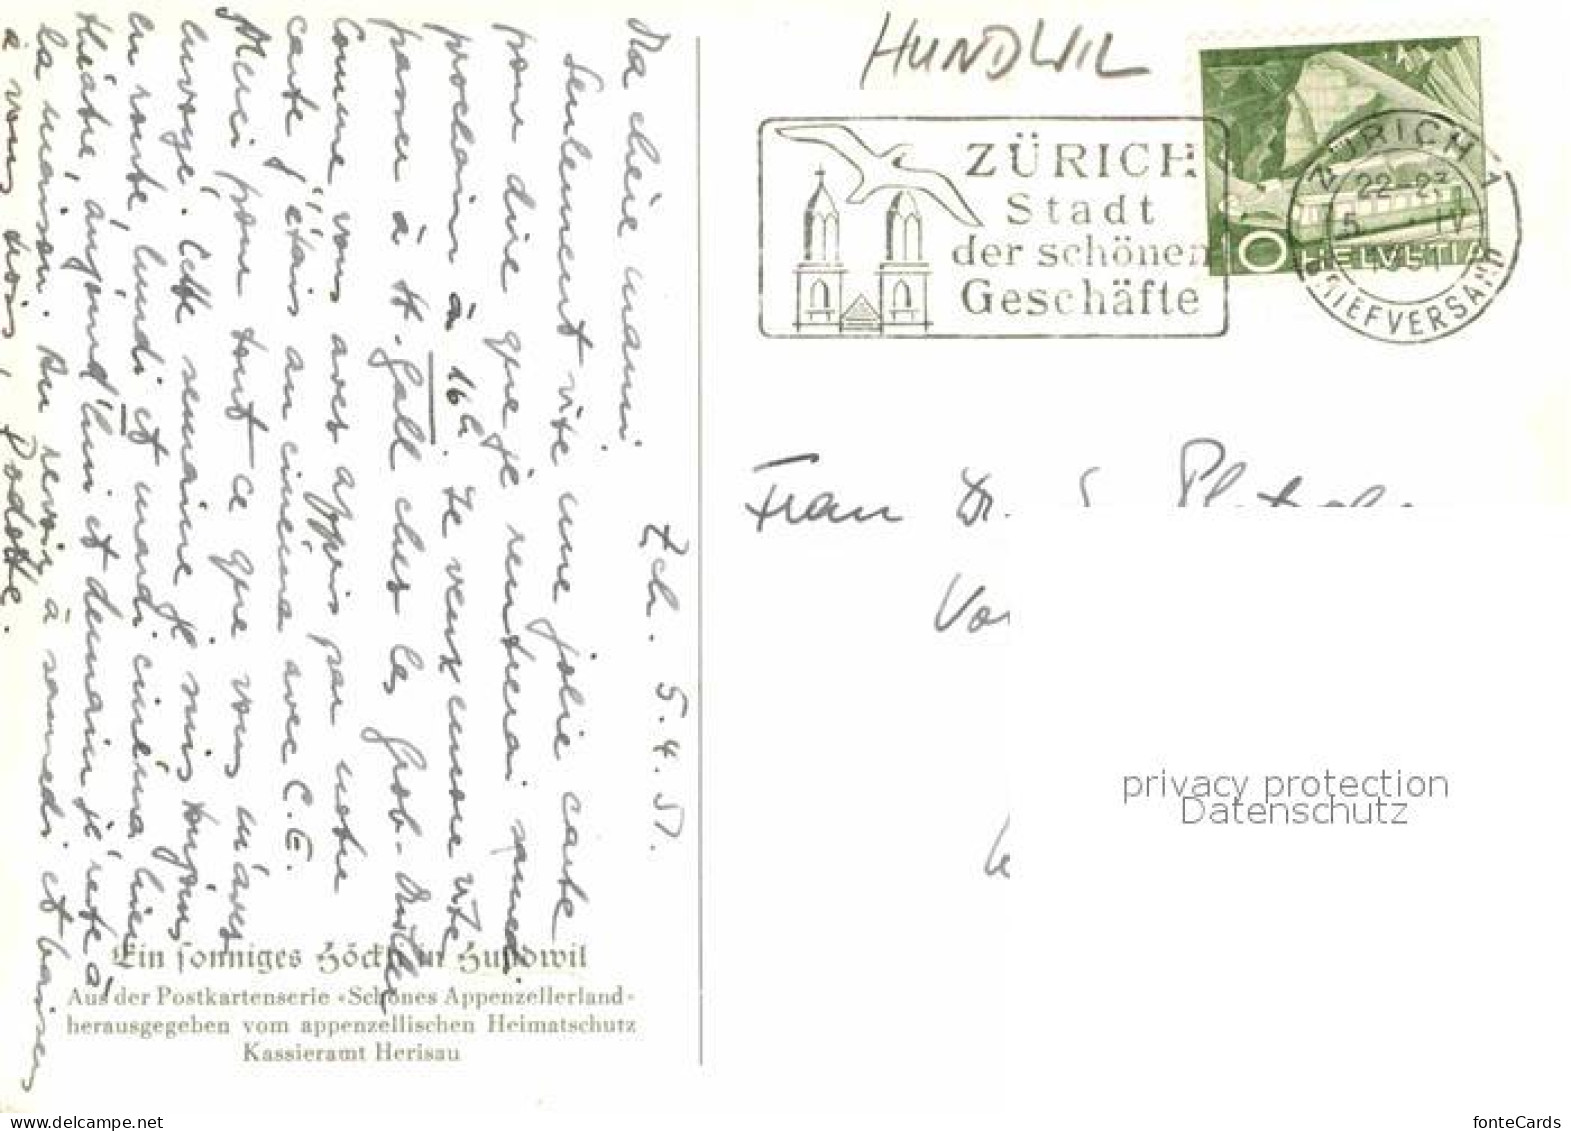 HUNDWIL
ZÜRICH
Stadt
der schönen
Geschäfte
ZÜRICH 1
22-23
5. IV
1951
BRIEFVERSAND
10 HELVETIA
Frau Dr.
Zch. 5.4.51.
Ma chère mami
Seulement vite une jolie carte
pour dire que je rentrerai samedi
prochain à 16h. Je veux encore vite
passer à St. Gall chez les Grob-
Comme vous avez appris par notre
carte j'étais au cinéma avec C.E.
Merci pour tout ce que vous m'avez
envoyé. Cette semaine je suis toujours
en route, lundi et mardi cinéma hier
théâtre, aujourd'hui et demain je reste à
la maison. Au revoir à samedi et baisers
à vous trois,
Ein sonniges Höckli in Hundwil
Aus der Postkartenserie «Schönes Appenzellerland»
herausgegeben vom appenzellischen Heimatschutz
Kassieramt Herisau
privacy protection
Datenschutz
www.delcampe.net
fonteCards